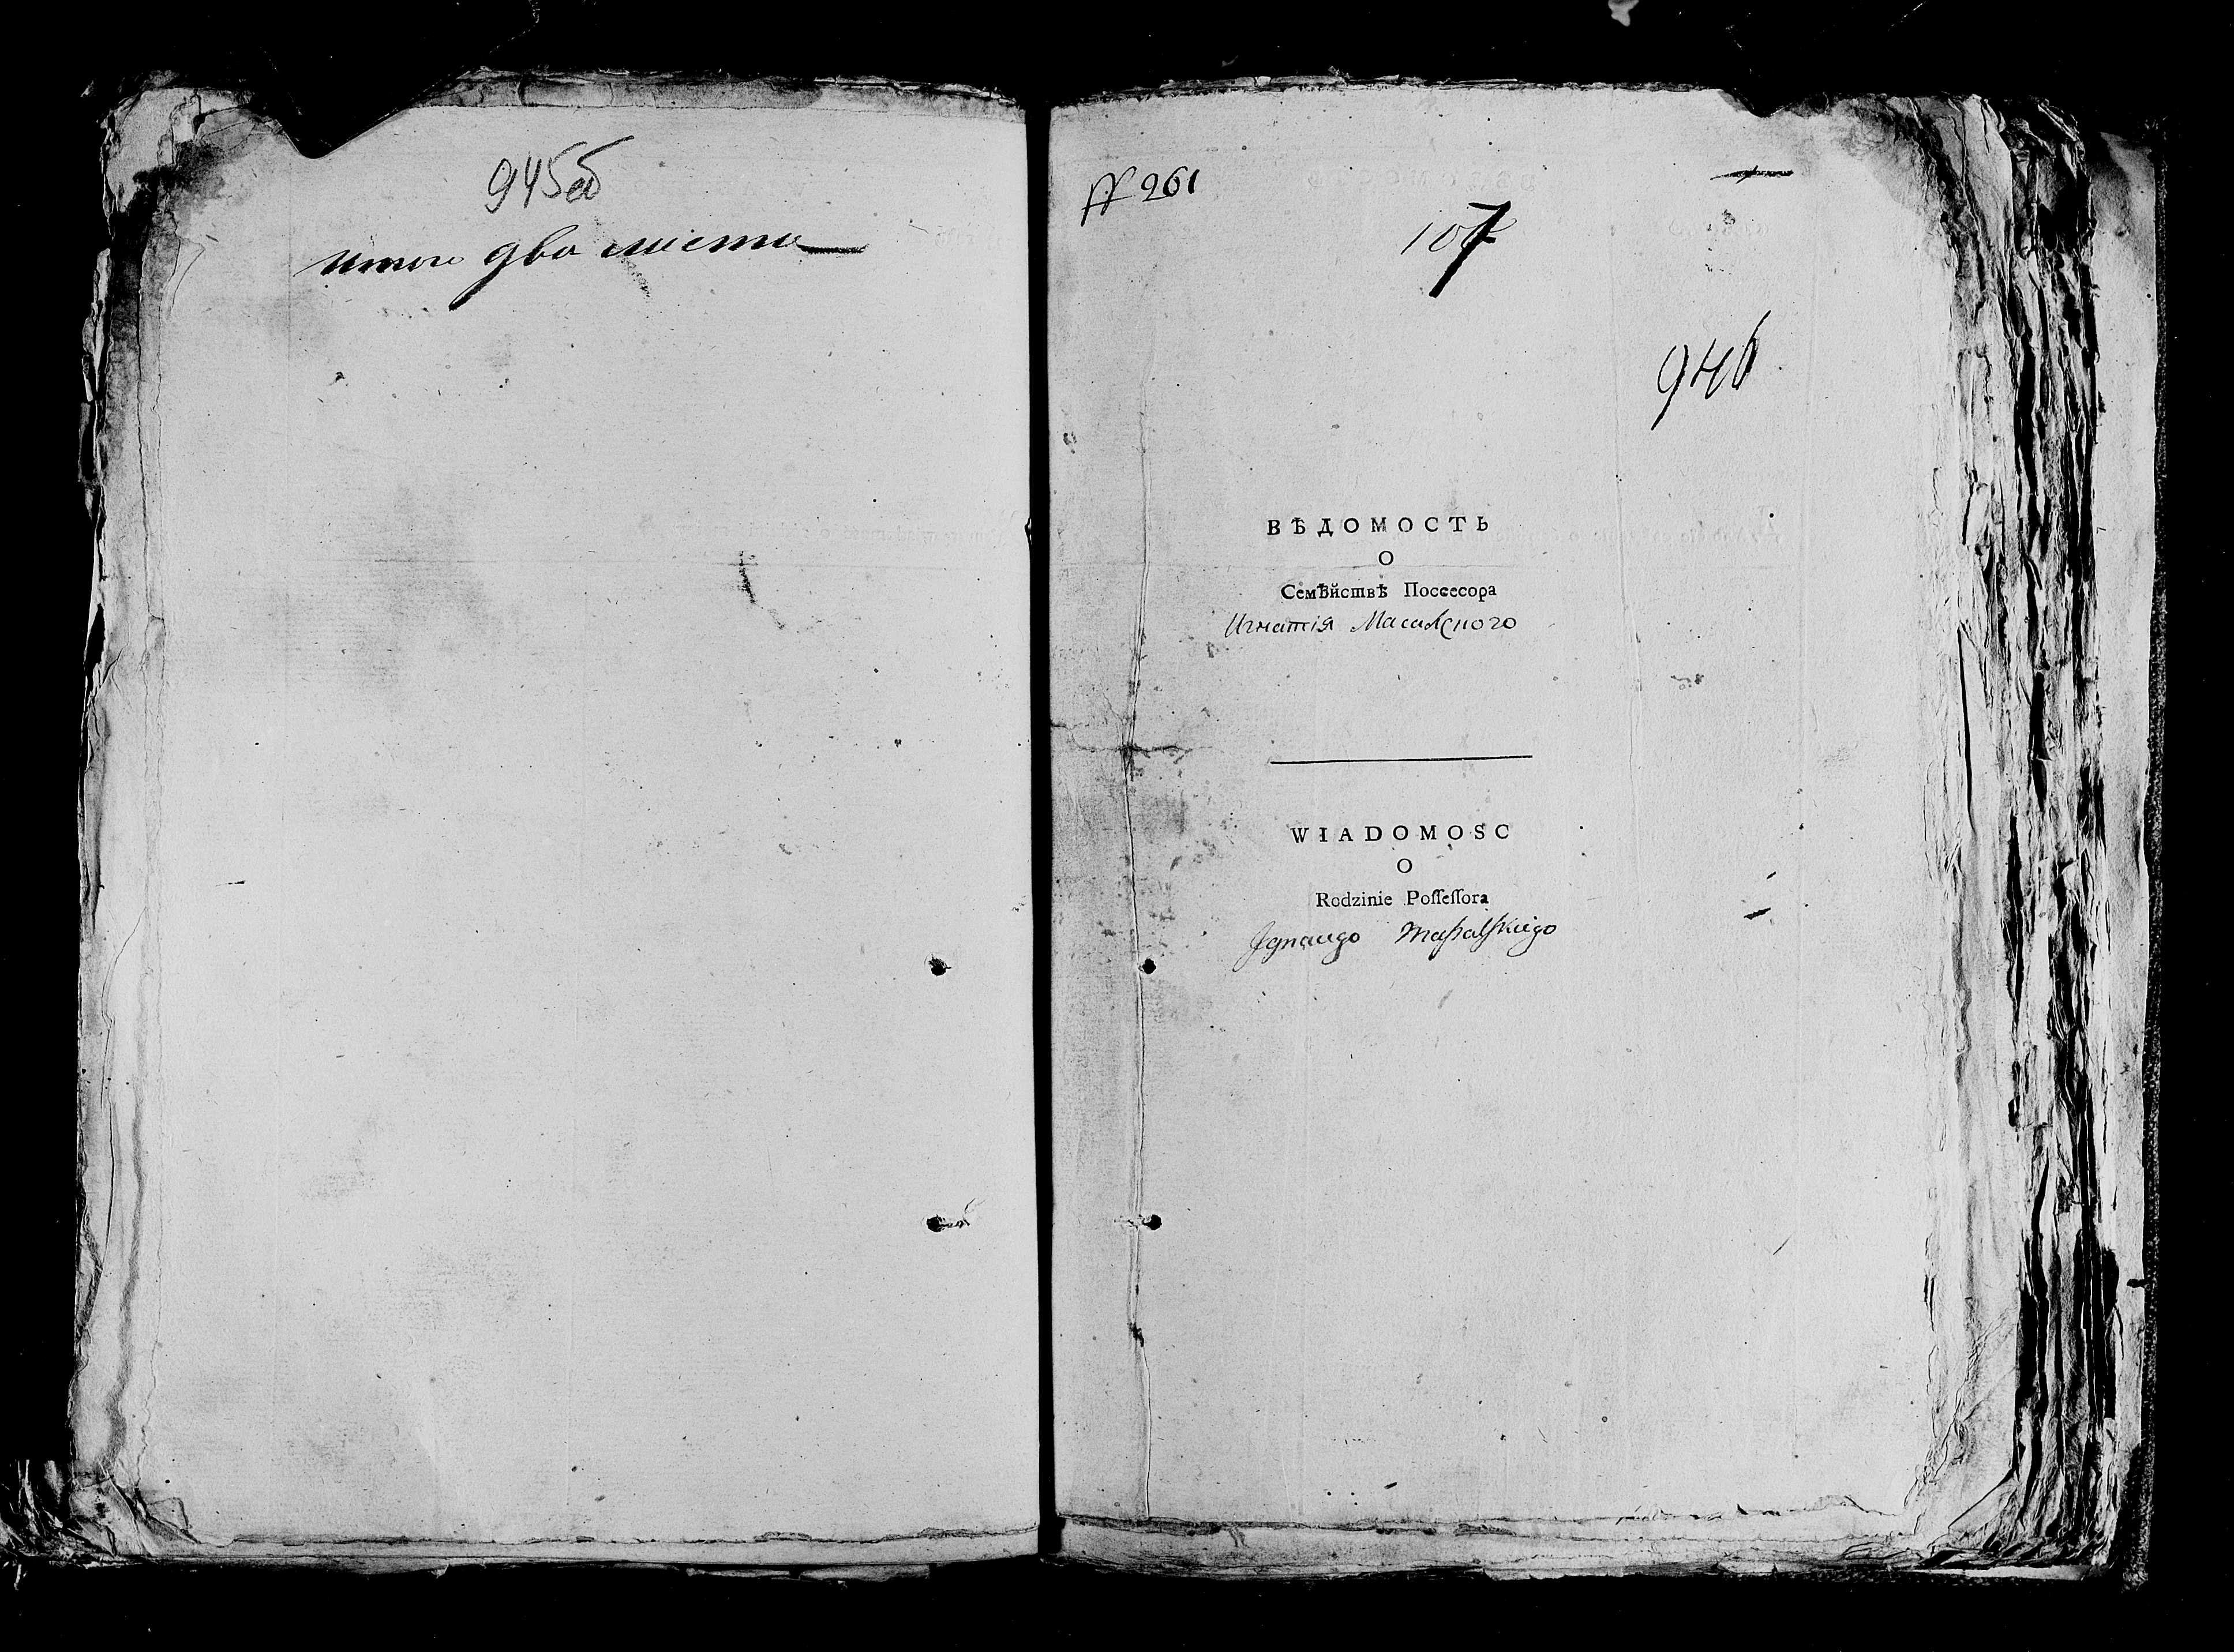 945об
итого два листа
№ 261
107
946
ВѢДОМОСТЬ
О
Семѣйствѣ Поссесора
Игнатія Масалскного
WIADOMOSC
O
Rodzinie Poſſeſſora
Jgnacego Maſsalſkiego